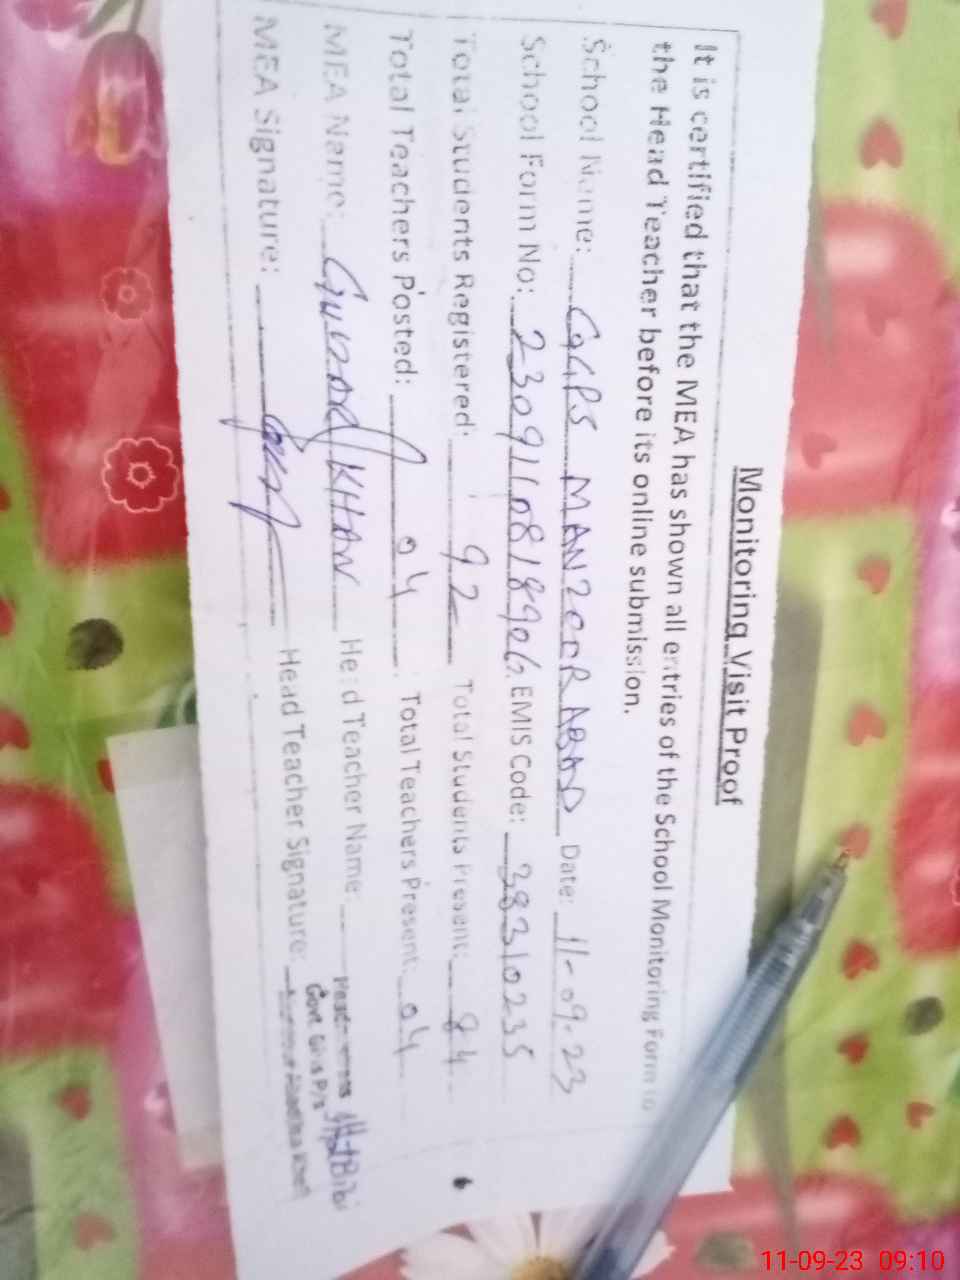 Monitoring Visit Proof
It is certified that the MEA has shown all entries of the School Monitoring Form to
the Head Teacher before its online submission.
School Name: GGPS MANZOOR ABAD Date: 11-09-23
School Form No: 2309110818906 EMIS Code: 38310235
Total Students Registered: 92 Total Students Present: 84
Total Teachers Posted: 04 Total Teachers Present: 04
MEA Name: GULZAR KHAN Head Teacher Name: Bibi
MEA Signature: Head Teacher Signature:
Headmistress
Govt. Girls P/S
11-09-23 09:10